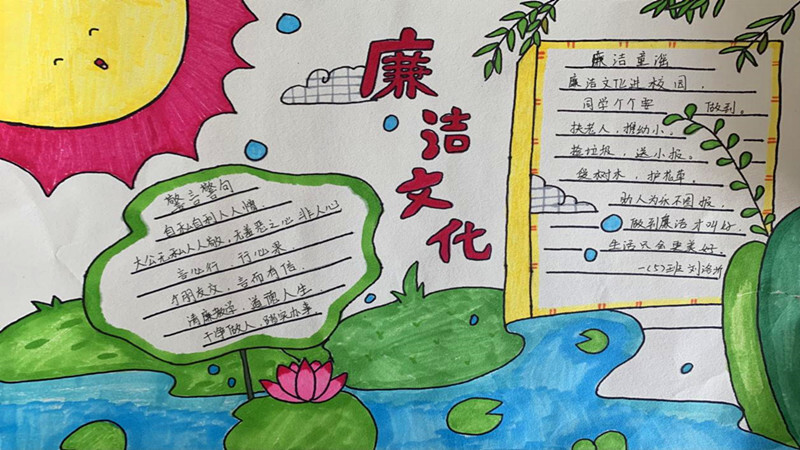 廉洁文化
警言警句
自私自利人人憎
大公无私人人敬,无羞恶之心 非人心
言必行 行必果
与朋友交,言而有信
清廉教学,道德人生
干净做人,踏实办事
廉洁童谣
廉洁文化进校园,
同学个个要 做到。
扶老人,携幼小,
捡垃圾,送小报。
爱树木,护花草,
助人为乐不图报,
做到廉洁才叫好,
生活只会更美好.
一(5)班 刘